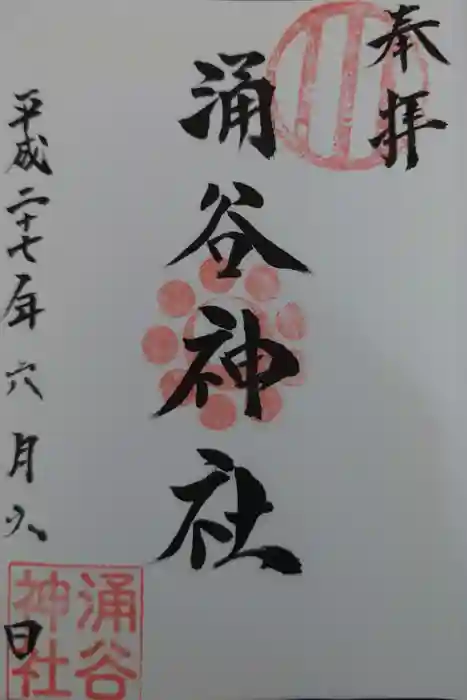 奉拝
涌谷神社
平成二十七年六月八日
涌谷
神社